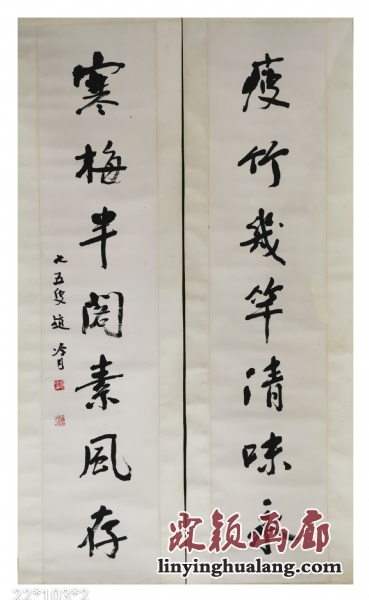 瘦竹幾竿清味永
寒梅半閣素風存
七五叟趙冷月
霖颖画廊
linyinghualang.com
22*103*2